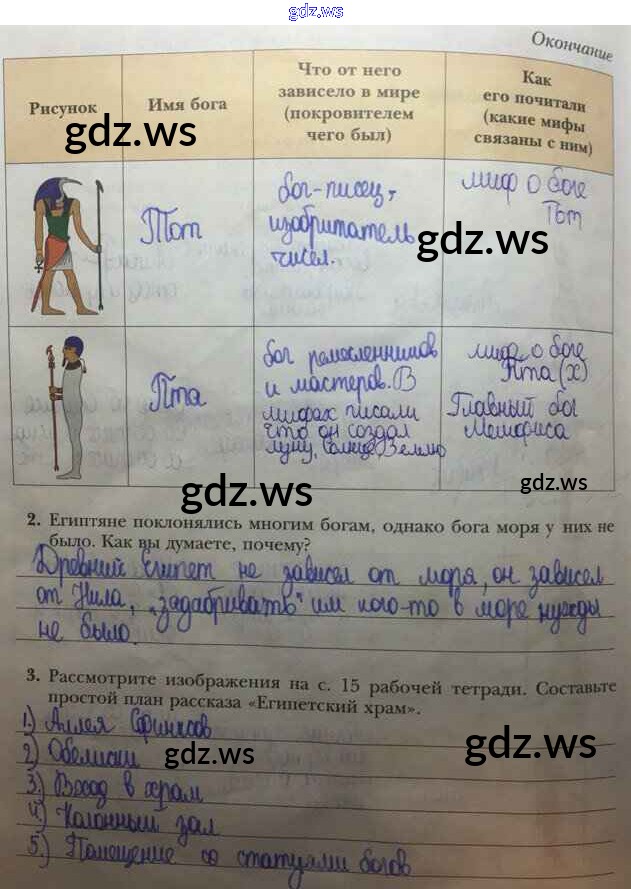 gdz.ws
Окончание
Рисунок
Имя бога
Что от него
зависело в мире
(покровителем
чего был)
Как
его почитали
(какие мифы
связаны с ним)
gdz.ws
Тот
бог-писец,
изобритатель
чисел.
миф о боге
Тот
gdz.ws
Пта
бог ремесленников
и мастеров. В
мифах писали
что он создал
луну, солнце, Землю
миф о боге
Пта(х)
Главный бог
Мемфиса
gdz.ws
gdz.ws
2. Египтяне поклонялись многим богам, однако бога моря у них не
было. Как вы думаете, почему?
Древний египет не зависел от моря, он зависел
от Нила, „задабривать" им кого-то в море нужды
не было.
3. Рассмотрите изображения на с. 15 рабочей тетради. Составьте
простой план рассказа «Египетский храм».
1.) Аллея Сфинксов
2) Обелиски
gdz.ws
gdz.ws
3.) Вход в храм
4.) Колонный зал
5.) Помещение со статуями богов